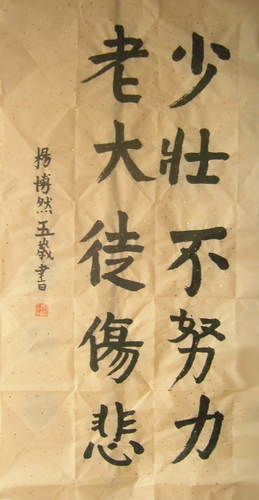 少壯不努力
老大徒傷悲
楊博然五歲書